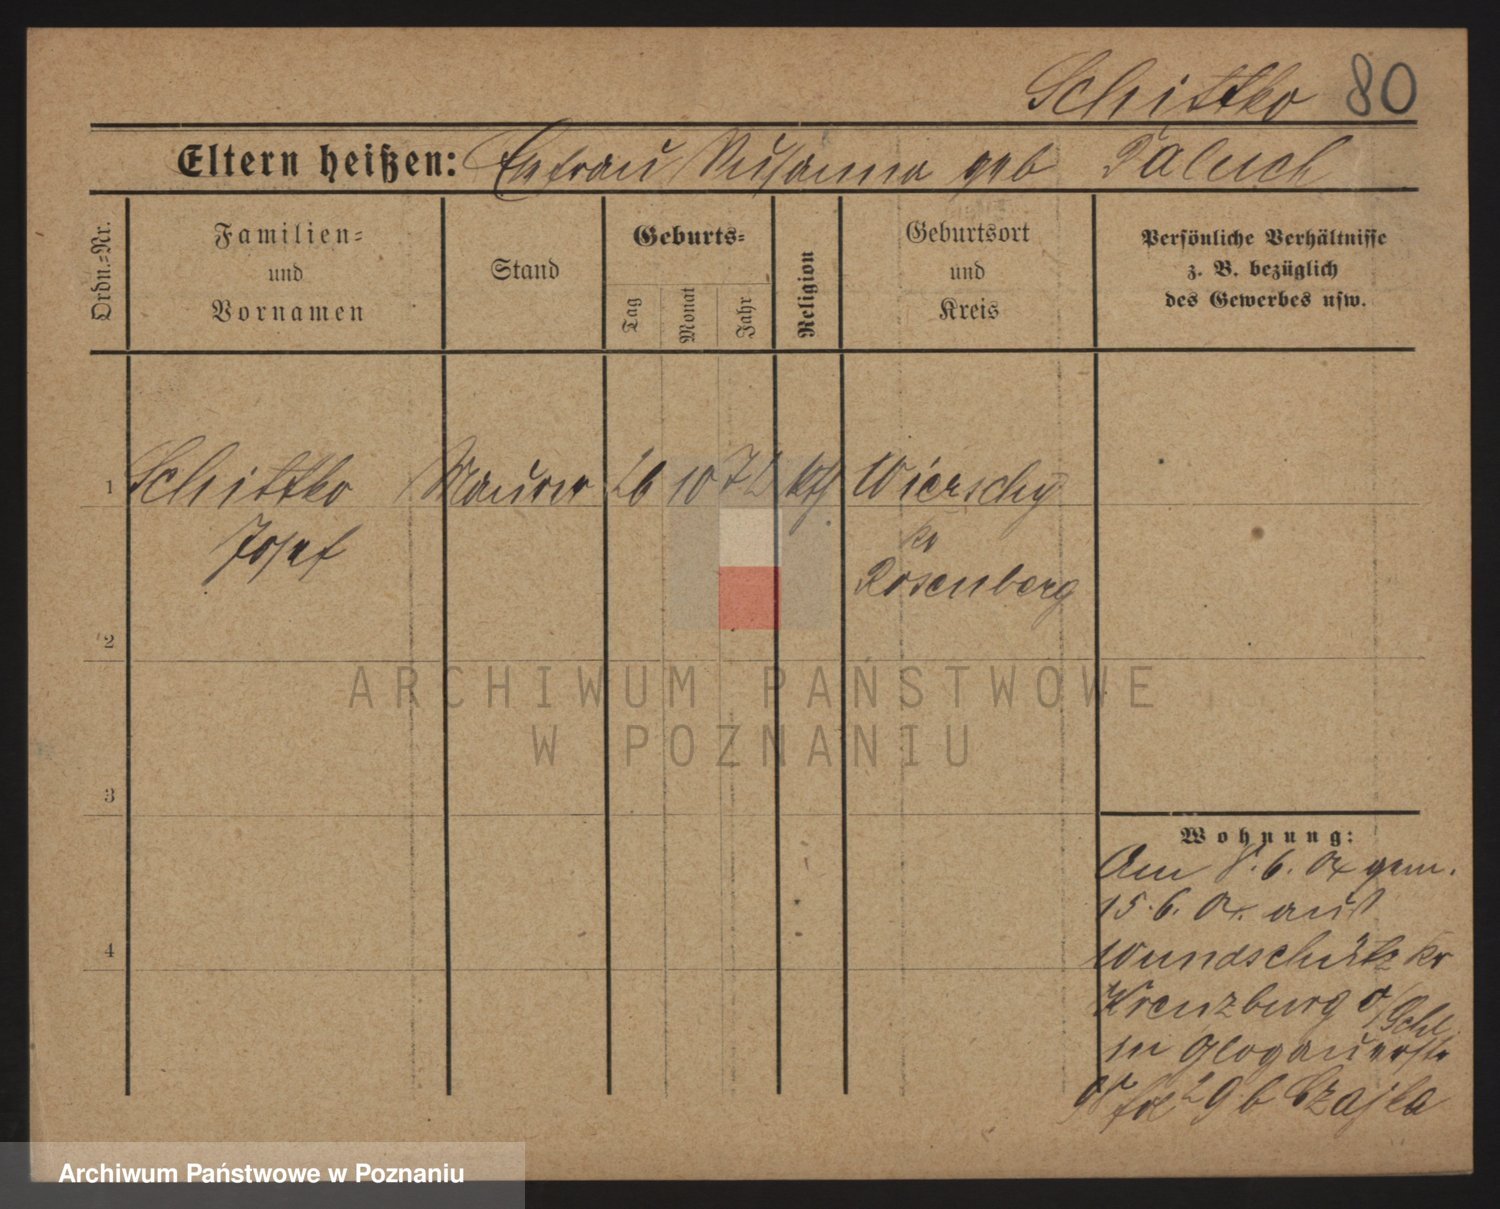 Schittko 80
Eltern heißen: Ehefrau Susanna geb Paluch
Ordn.-Nr.
Familien-
und
Vornamen
Stand
Geburts-
Tag
Monat
Jahr
Religion
Geburtsort
und
Kreis
Persönliche Verhältnisse
z. B. bezüglich
des Gewerbes usw.
1 Schittko Maurer 26 10 72 kth Wierschy
Josef
kr
Rosenberg
2
3
4
Wohnung:
Am 8. 6. 04 gem.
15. 6. 04. aus
Wundschütz kr
Kreuzburg o/Schl
in Glogauerstr
b Czajka
ARCHIWUM PAŃSTWOWE
W POZNANIU
Archiwum Państwowe w Poznaniu